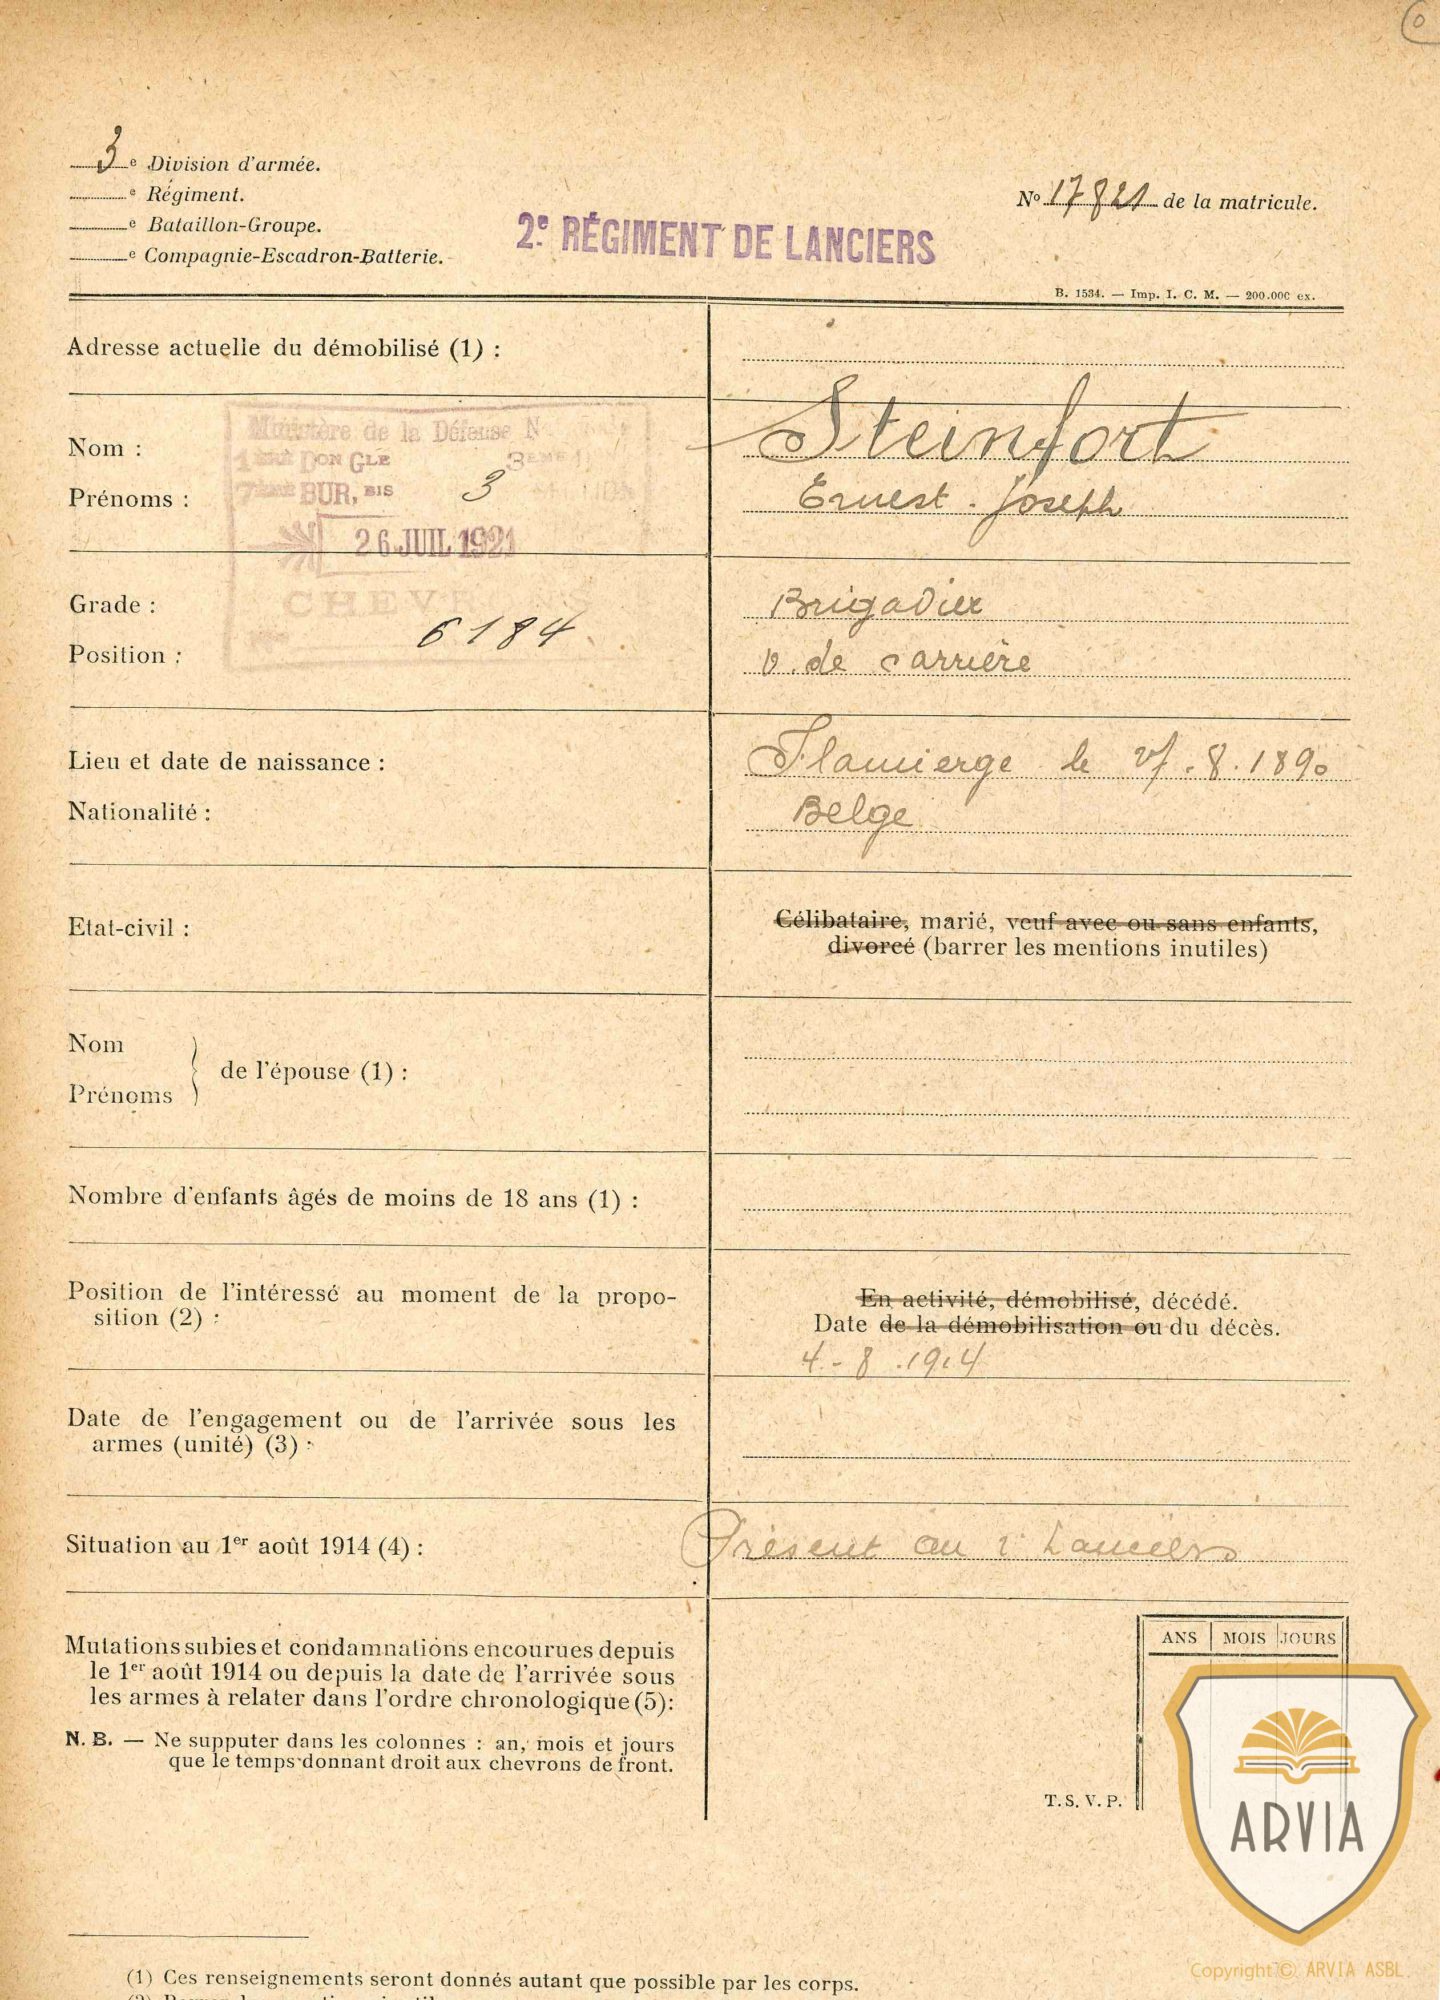 3e Division d'armée.
e Régiment.
e Bataillon-Groupe.
e Compagnie-Escadron-Batterie.
No 17821 de la matricule.
2e RÉGIMENT DE LANCIERS
B. 1534. — Imp. I. C. M. — 200.000 ex.
Adresse actuelle du démobilisé (1) :
Ministère de la Défense N
1ère DON GLE 3eme
7ème BUR, BIS 3
26 JUIL 1921
CHEVRONS
6184
Nom : Steinfort
Prénoms : Ernest - Joseph
Grade : Brigadier
Position : v. de carrière
Lieu et date de naissance : Flamierge le 27.8.1890
Nationalité : Belge
Etat-civil : Célibataire, marié, veuf avec ou sans enfants,
divorcé (barrer les mentions inutiles)
Nom
Prénoms
de l'épouse (1) :
Nombre d'enfants âgés de moins de 18 ans (1) :
Position de l'intéressé au moment de la propo-
sition (2) :
En activité, démobilisé, décédé.
Date de la démobilisation ou du décès.
4.-8.1914
Date de l'engagement ou de l'arrivée sous les
armes (unité) (3) :
Situation au 1er août 1914 (4) : Présent au 2 Lanciers
Mutations subies et condamnations encourues depuis
le 1er août 1914 ou depuis la date de l'arrivée sous
les armes à relater dans l'ordre chronologique (5):
N. B. — Ne supputer dans les colonnes : an, mois et jours
que le temps donnant droit aux chevrons de front.
ANS MOIS JOURS
T. S. V. P.
ARVIA
Copyright © ARVIA ASBL
(1) Ces renseignements seront donnés autant que possible par les corps.